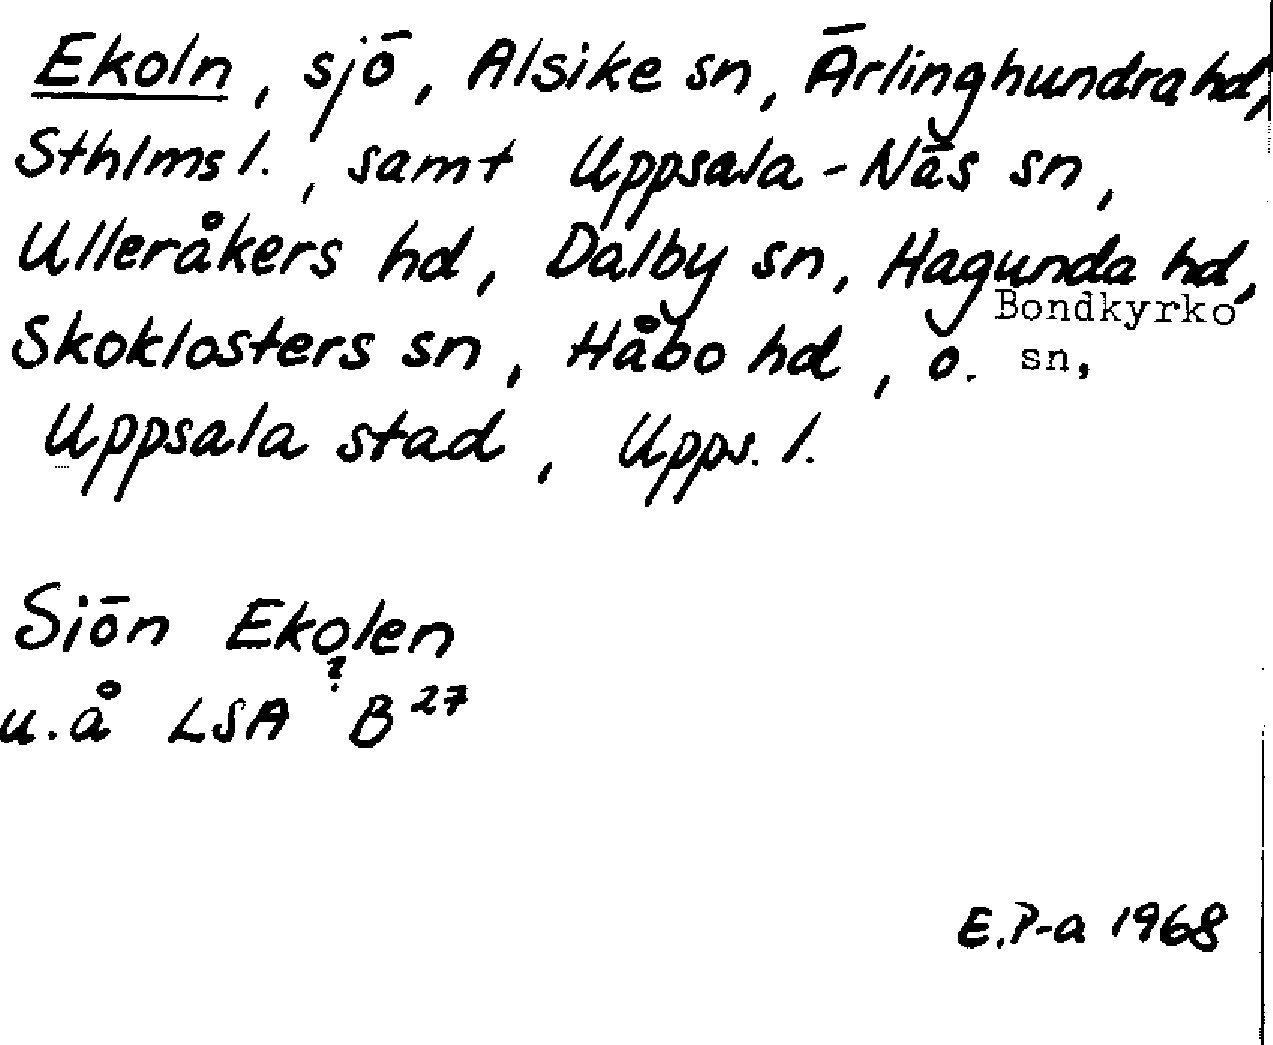 Ekoln, sjö, Alsike sn, Ärlinghundra hd,
Sthlms l., samt Uppsala-Näs sn,
Ulleråkers hd, Dalby sn, Hagunda hd,
Skoklosters sn, Håbo hd, o. Bondkyrko sn,
Uppsala stad, Upps. l.
Siön Ekolen
?
u.å LSA B 27
E.P-a 1968